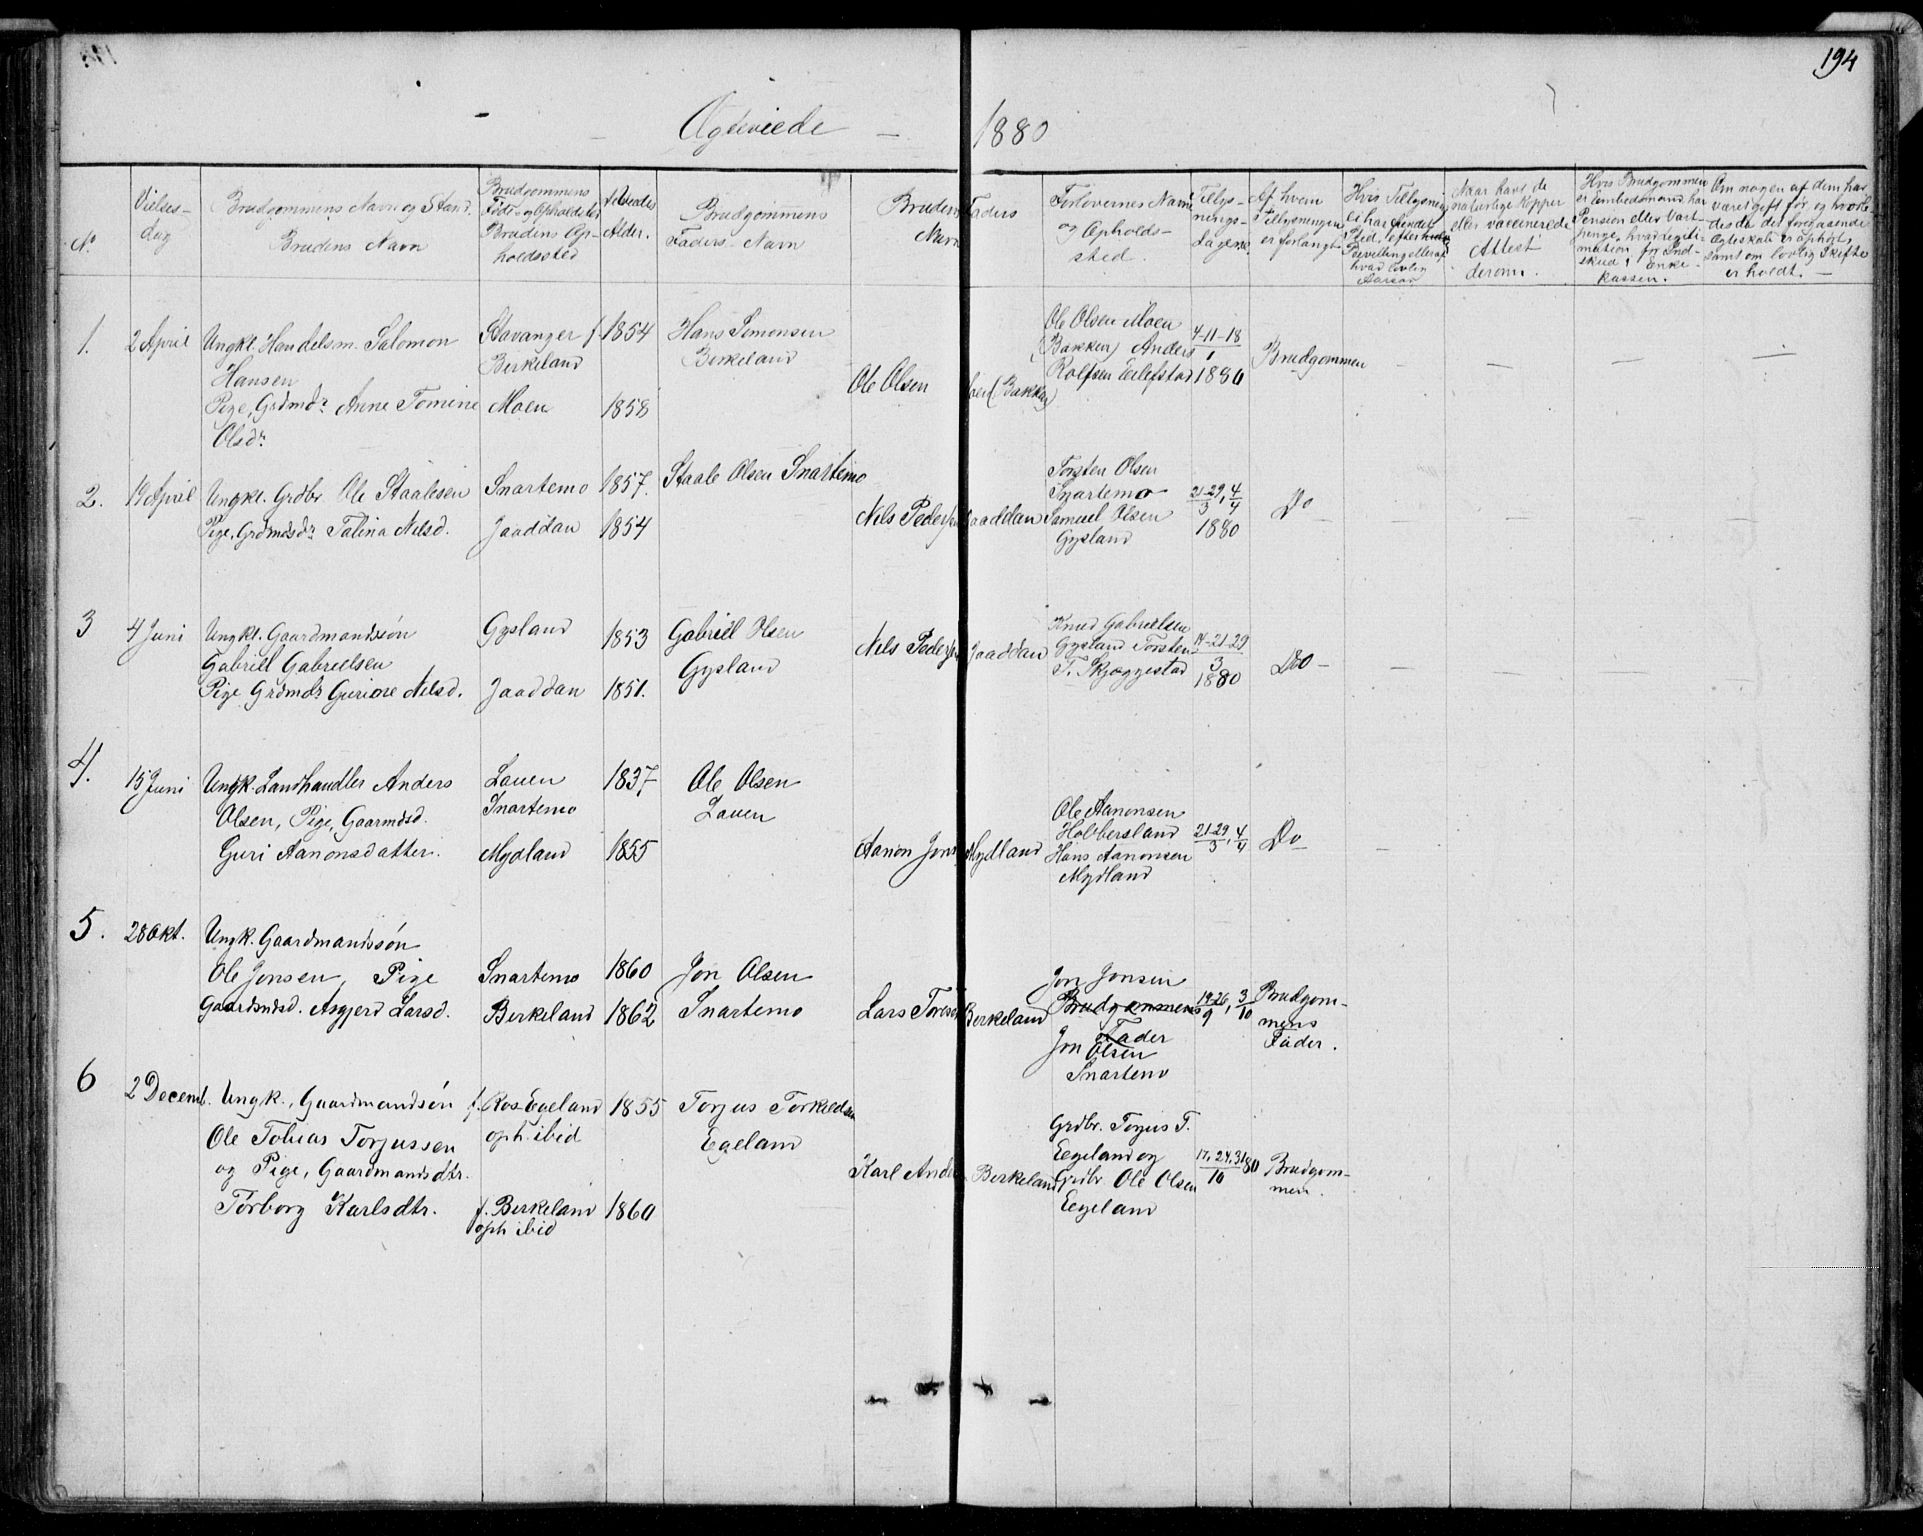 194
Ægteviede - 1880
No
Vielses-
dag
Brudgommens Navn og Stand.
Brudens Navn
Brudgommens
Føde- og Opholdssted
Brudens Op-
holdssted
Alder.
Brudgommens
Faders Navn
Brudens Faders
Navn
Forlovernes Navn
og Opholds-
sted.
Tillys-
nings-
dagene
Af hvem
Tillysningen
er forlangt
Hvis Tillysning
ei har fundet
Sted, efter
Bevilling eller af
hvad lovlig
Aarsag
Naar havt de
naturlige Kopper
eller vaccinerede
Attest
derom.
Hvis Brudgommen
er Embedsmand, har
Pension eller Vart-
penge, hvad Legiti-
mation for Ind-
skud i Enke-
kassen.
Om nogen af dem har
været gift før, og hvorle-
des da det foregaaende
Ægteskab er ophørt,
samt om lovlig Skifte
er holdt. -
1. 2 April Ungkl. Handelsm. Salomon
Hansen
Pige, Grdmdr. Anne Tomine
Olsdr.
Stavanger f.
Birkeland
Moen
1854
1858
Hans Simonsen
Birkeland
Ole Olsen Moen (Bakken)
Ole Olsen Moen
(Bakken) Anders
Rolfsen Eilefstad
4-11-18
1
1880
Brudgommen
2. 19 April Ungkl. Grdbr. Ole Staalesen
Pige, Grdmdsdr. Talina Nilsd.
Snartemo
Jaaddan
1857.
1854
Staale Olsen Snartemo
Nils Pedersen Jaaddan
Torsten Olsen
Snartemo
Samuel Olsen
Gysland
21-29, 4
3 4
1880
Do
3 4 Juni Ungkl. Gaardmandssøn
Gabriel Gabrielsen
Pige Grdmdr. Guriore Nilsd.
Gysland
Jaaddan
1853
1851.
Gabriel Olsen
Gysland
Nils Pedersen Jaaddan
Knud Gabrielsen
Gysland Torsten
T. Skjæggestad
14-21-29
3
1880
Do -
4. 15 Juni Ungk. Landhandler Anders
Olsen, Pige, Gaarmdsd.
Guri Aanonsdatter.
Lauen
Snartemo
Mydland
1837
1855
Ole Olsen
Lauen
Aanon Jons. Mydland
Ole Aanonsen
Hobbersland
Hans Aanonsen
Mydland
21-29, 4
3 4
Do
5. 28 Okt. Ungk. Gaardmandssøn
Ole Jonsen, Pige
Gaardmdsd. Asgjerd Larsd.
Snartemo
Birkeland
1860
1862
Jon Olsen
Snartemo
Lars Toresen Birkeland
Jon Jonsen
Brudgommens
Fader
Jon Olsen
Snartemo
19-26, 3
9 10
Brudgom-
mens
Fader.
6 2 Decemb. Ungk., Gaardmandsøn
Ole Tobias Torjussen
og Pige, Gaardmandsdtr.
Torborg Karlsdtr.
f. Ros-Egeland
oph. ibid
f. Birkeland
oph ibid
1855
1860
Torjus Torkildsen
Egeland
Karl Anders Birkeland
Grdbr. Torjus T.
Eegeland og
Grdbr. Ole Olsen
Eegeland
17, 24, 31 80
10
Brudgom-
men.